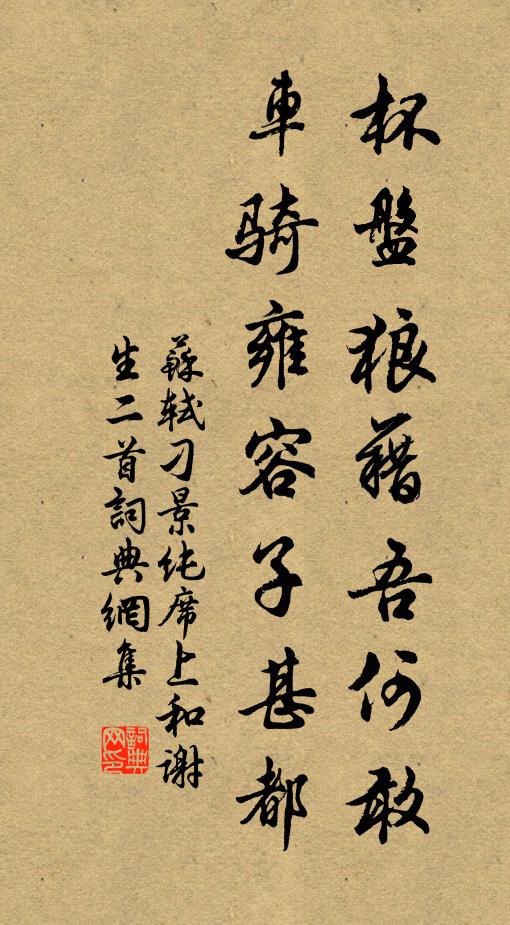 杯盤狼藉吾何敢
車騎雍容子甚都
蘇軾刁景純席上和謝
生二首詞典網集
詞典网印